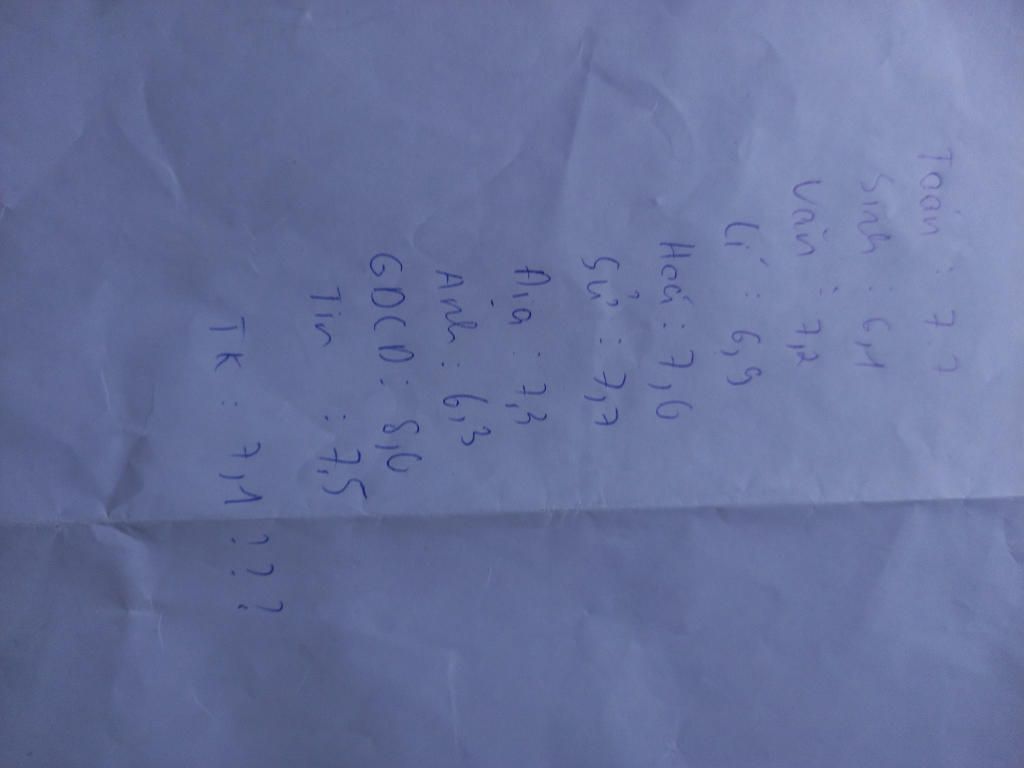 Toán : 7.7
Sinh : 6,1
Văn : 7,2
Lí : 6,9
Hoá : 7,6
Sử : 7,7
Địa : 7,3
Anh : 6,3
GDCD : 8,6
Tin : 7,5
TK : 7,1 ???